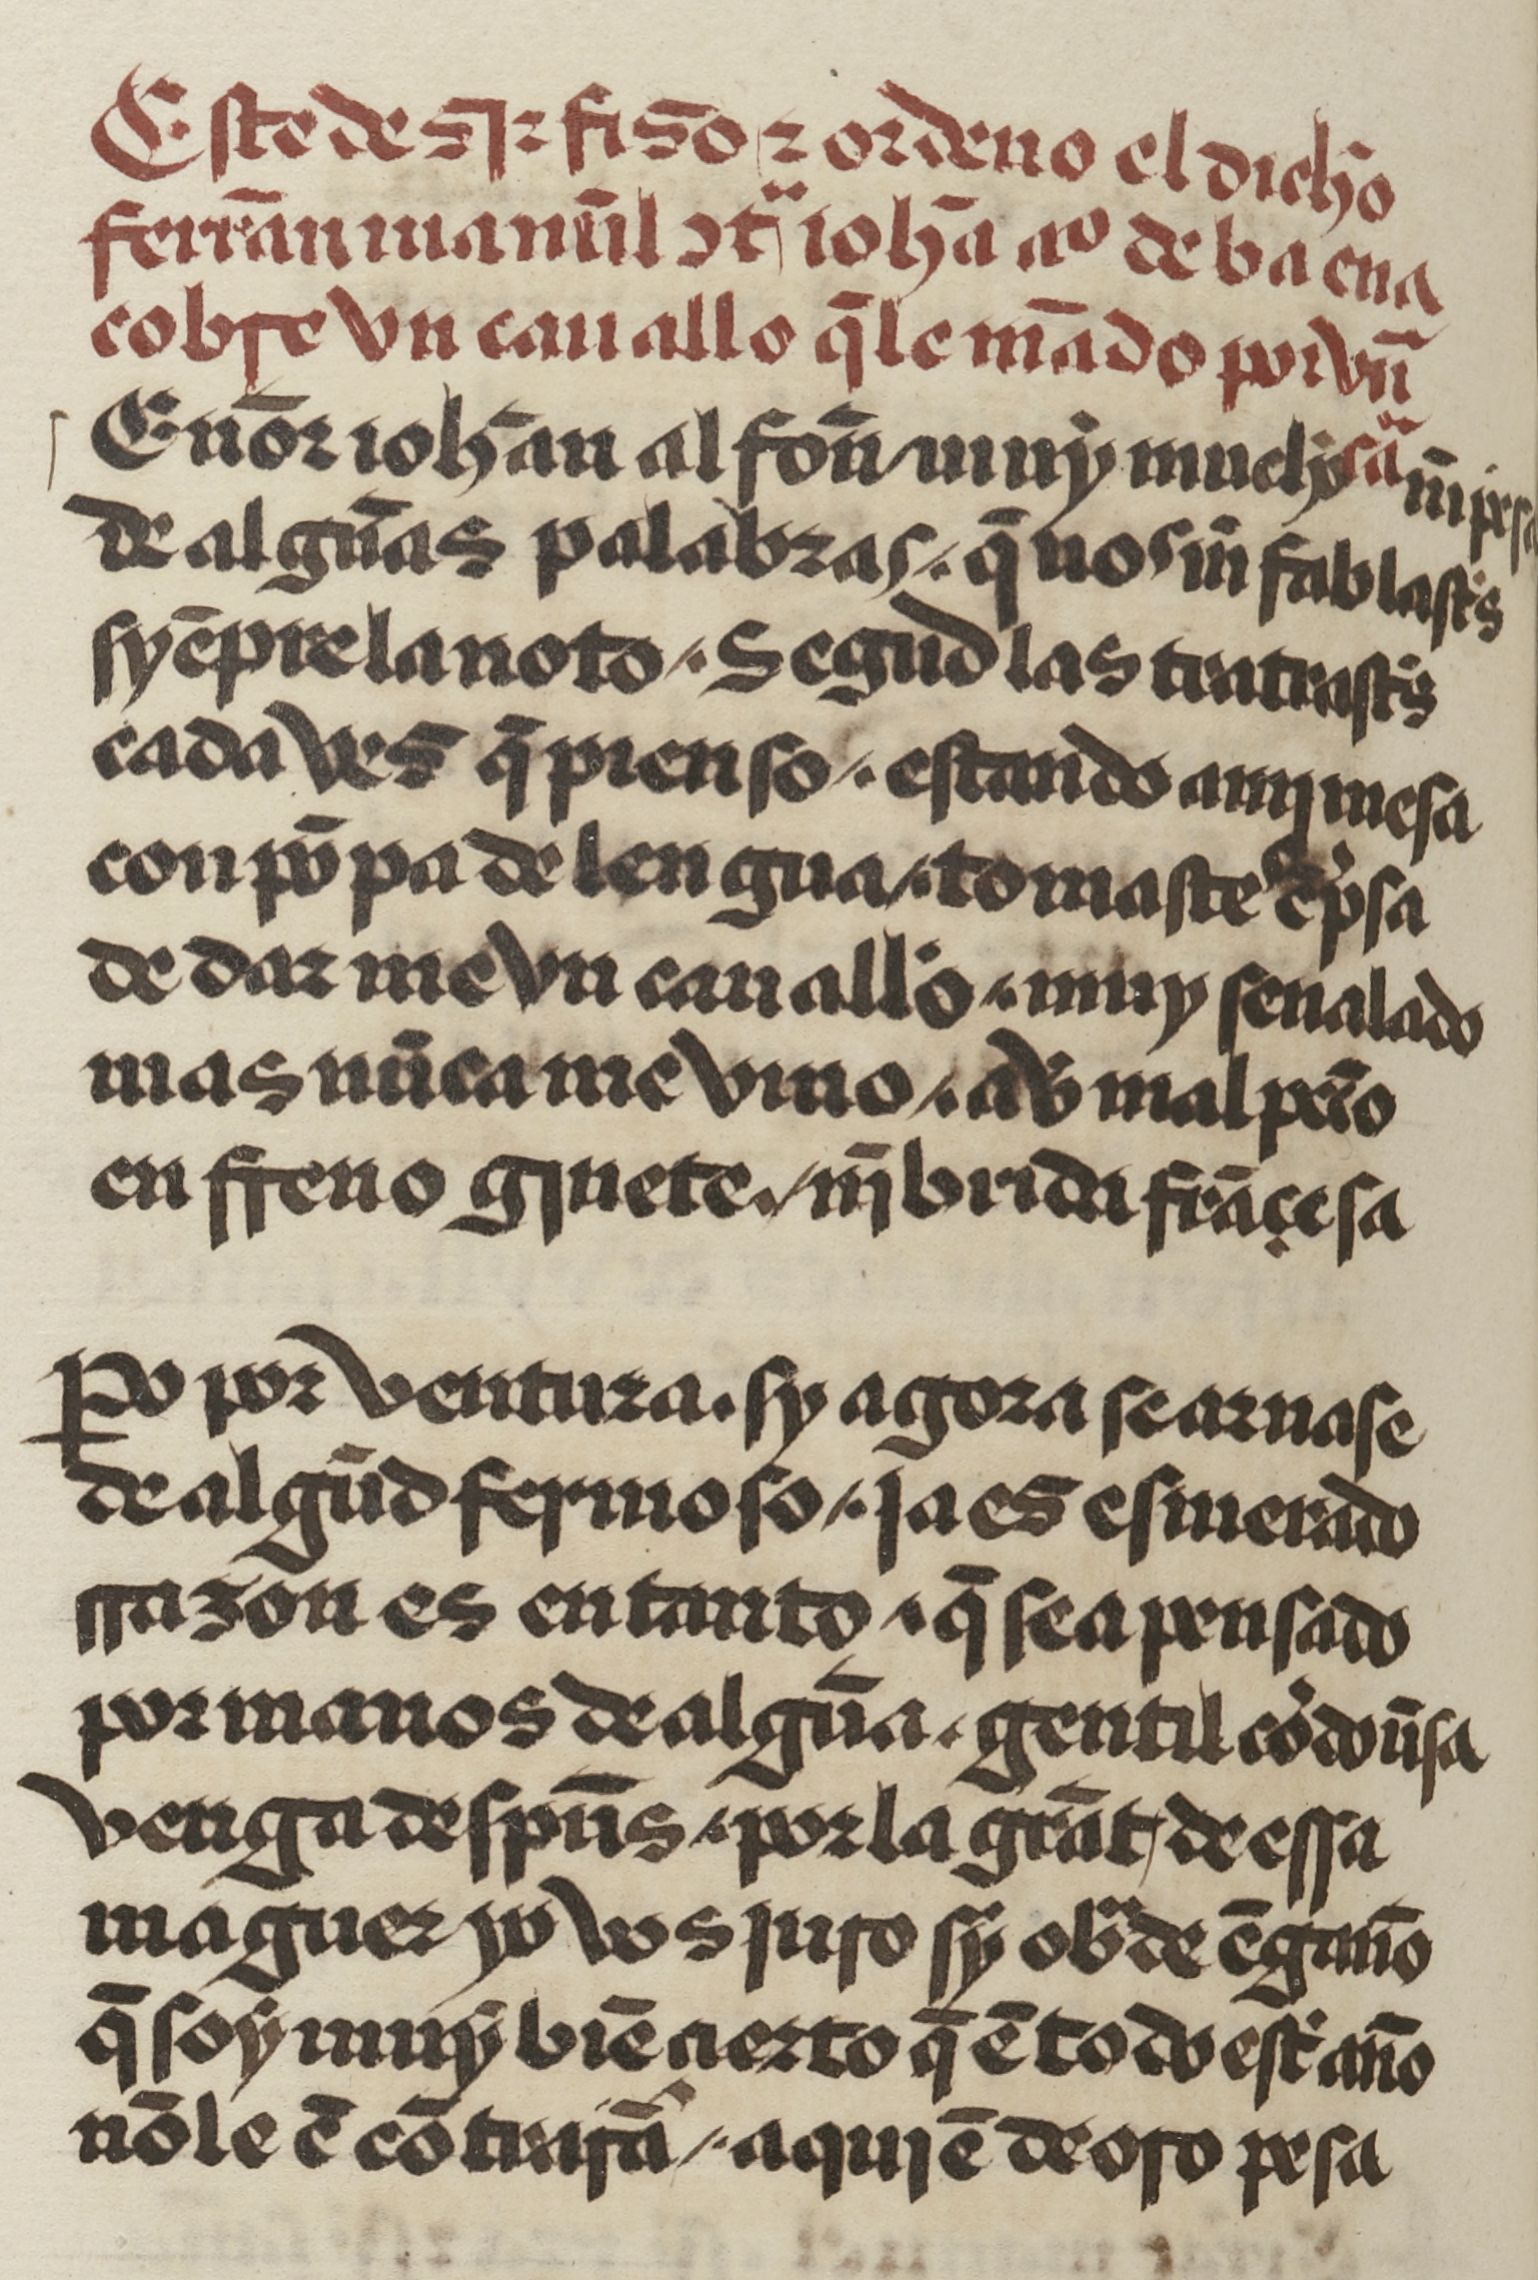 Este desir fiso ⁊ ordeno el dicho
ferrān manūl ↄtͣ iohān aº de baena
sobre vn cauallo q̄ le mādo por vn̄
Enōr iohān alfon̄ / muy much so m̄ presa
de algūas palabras /. q̄ uos m̄ fablastˢ
syēprela noto /. Segūd las tratastˢ
cada ves q̄ pienso /. estando a mj mesa
con pōpa de lengua /. tomaste ēpˢsa
de dar me vn cauallo /. muy senalado
mas nūca me vino /. avn mal pero
en freno gjnete ./ nj̄ brida frāçesa

Po por ventura . sy agora se arnase
de algūd fermoso /. jaes esmerado
rrazon es en tanto /. q̄ sea pensado
por manos de algūa /. gentil cordoūsa
venga despūs /. por la grāt deessa
maguer yo vos juro sy obᵃ de ēgan̄o
q̄ soy muy biē çierto q̄ ē todo este an̄o
nō le ē cōtrarā /. a qujē de oro pesa